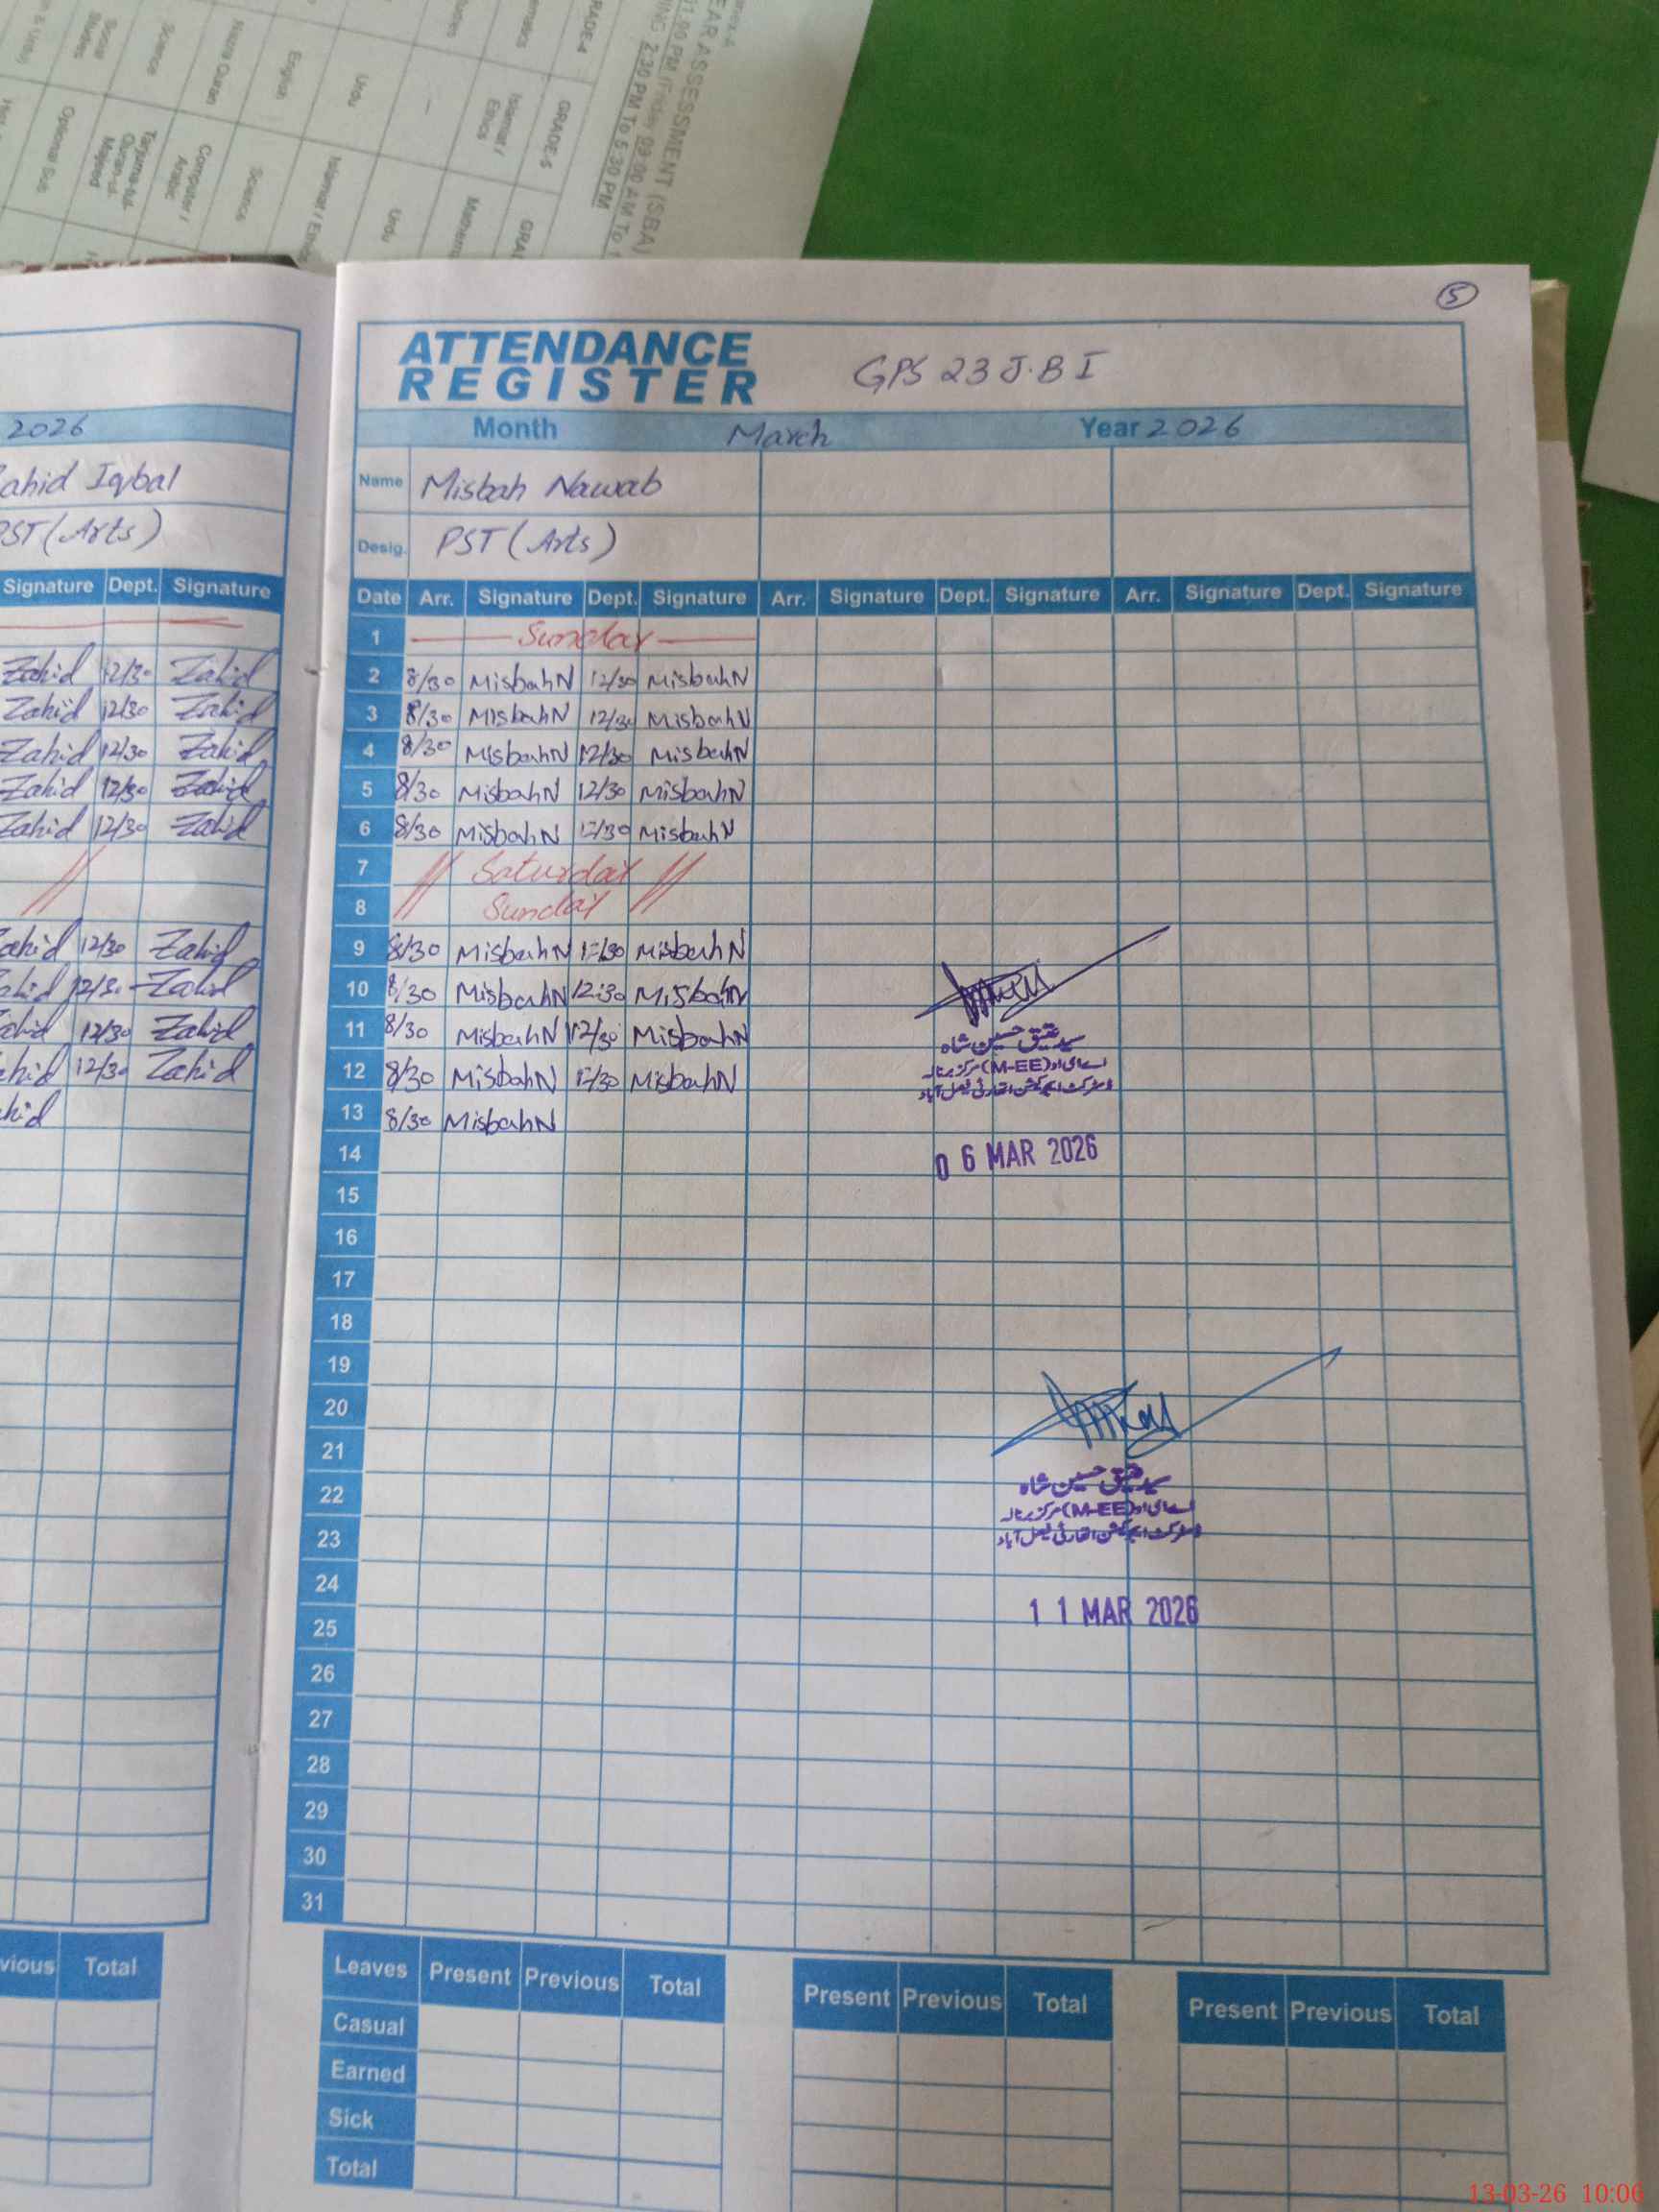 nnex-A
EAR ASSESSMENT (SBA)
(Friday 09:00 AM To 1
2:30 PM To 5:30 PM
GRADE-4
GRADE-5
GRA
Islamiat /
Ethics
Mathem
Urdu
Urdu
English
Islamiat / Ethi
Nazra Quran
Science
Science
Computer /
Arabic
Social
Studies
Tarjuma-tul-
Quran-ul-
Majeed
Optional Sub
5
ATTENDANCE
REGISTER
GPS 23 J.B I
Month March Year 2026
Name Misbah Nawab
Desig. PST (Arts)
Date Arr. Signature Dept. Signature Arr. Signature Dept. Signature Arr. Signature Dept. Signature
1 Sunday
2 8/30 MisbahN 12/30 MisbahN
3 8/30 MisbahN 12/30 MisbahN
4 8/30 MisbahN 12/30 MisbahN
5 8/30 MisbahN 12/30 MisbahN
6 8/30 MisbahN 12/30 MisbahN
7 Saturday
8 Sunday
9 8/30 MisbahN 12/30 MisbahN
10 8/30 MisbahN 12:30 MisbahN
11 8/30 MisbahN 12/30 MisbahN
12 8/30 MisbahN 12/30 MisbahN
13 8/30 MisbahN
14
15
16
17
18
19
20
21
22
23
24
25
26
27
28
29
30
31
حسین شاہ
اے ای او (M-EE) مرکز
ڈسٹرکٹ ایجوکیشن اتھارٹی فیصل آباد
06 MAR 2026
حسین شاہ
اے ای او (M-EE) مرکز
ڈسٹرکٹ ایجوکیشن اتھارٹی فیصل آباد
11 MAR 2026
Leaves Present Previous Total Present Previous Total Present Previous Total
Casual
Earned
Sick
Total
2026
ahid Iqbal
PST (Arts)
Signature Dept. Signature
Zahid 12/30 Zahid
Zahid 12/30 Zahid
Zahid 12/30 Zahid
Zahid 12/30 Zahid
Zahid 12/30 Zahid
ahid 12/30 Zahid
ahid 12/30 Zahid
ahid 12/30 Zahid
ahid 12/30 Zahid
hid
vious Total
13-03-26 10:06